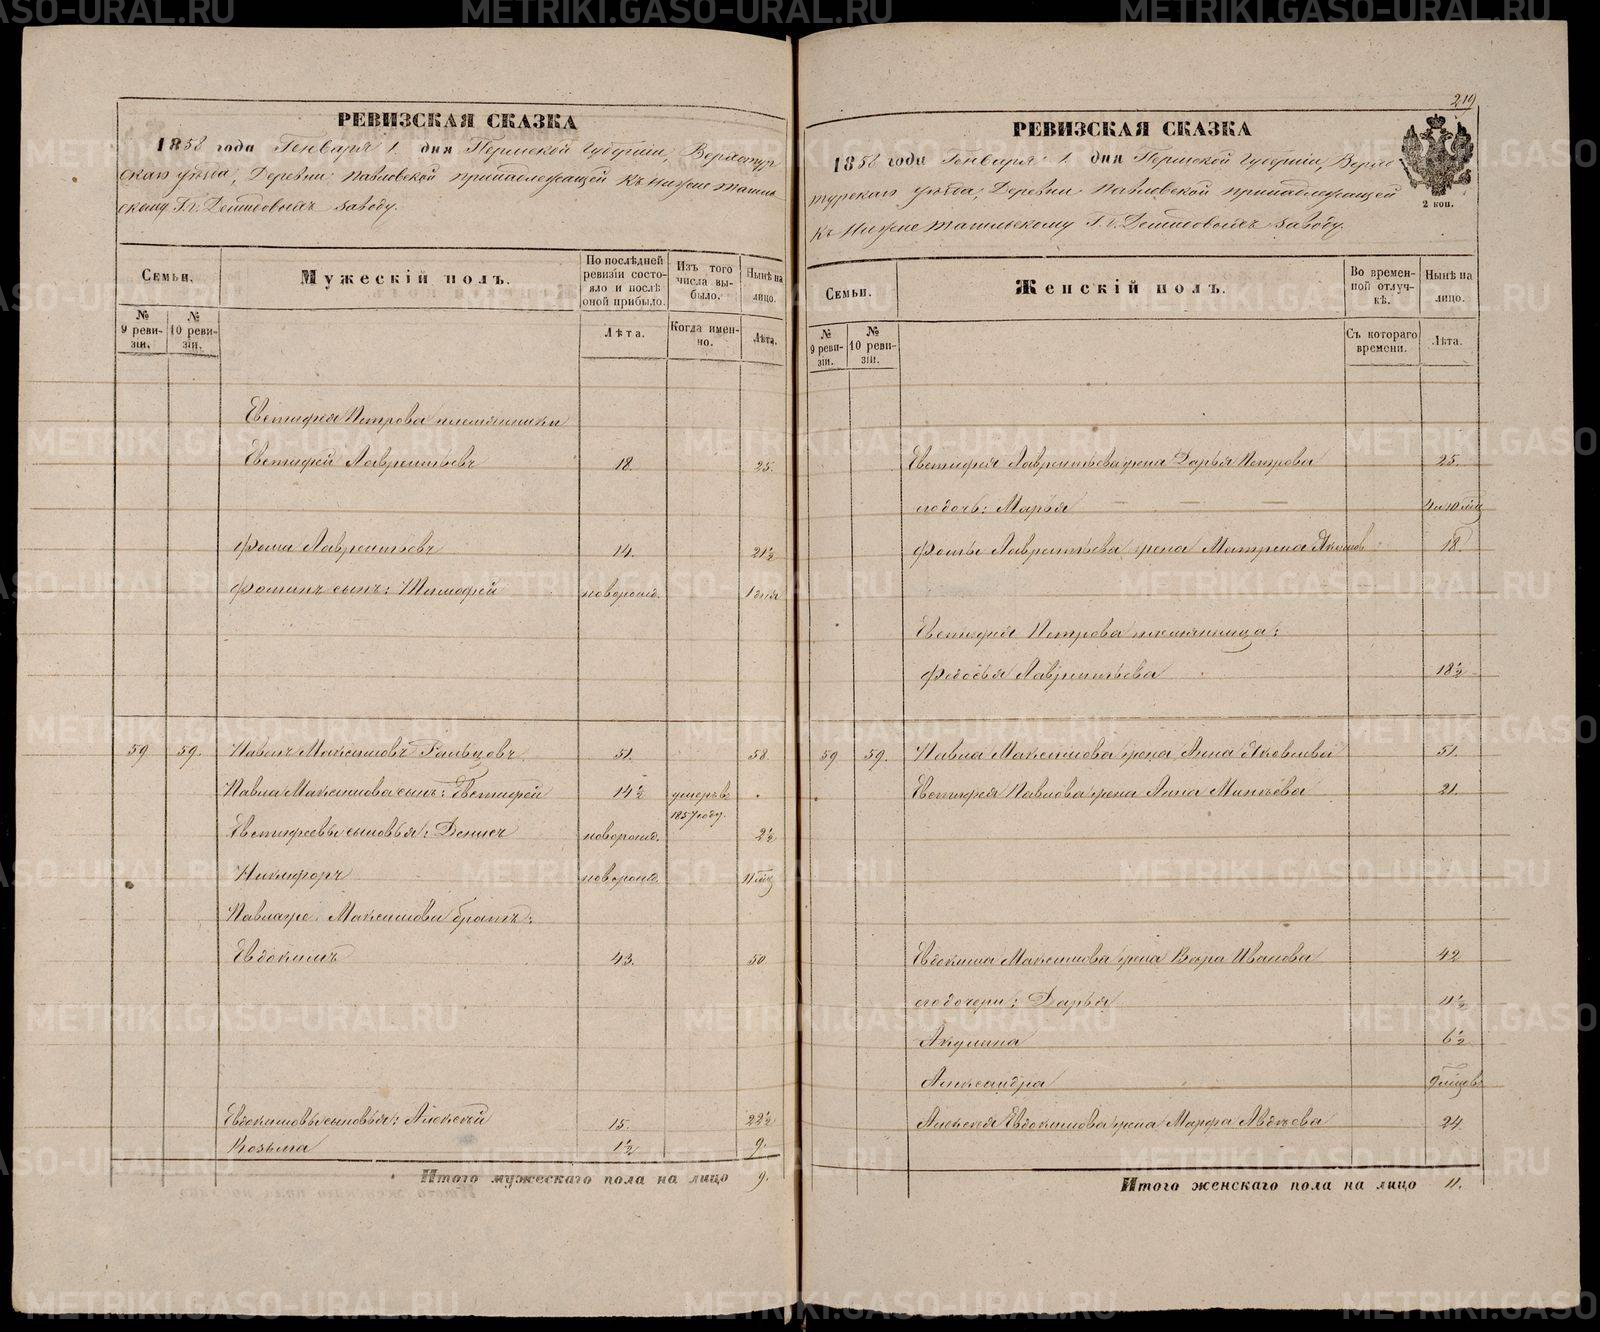 219
РЕВИЗСКАЯ СКАЗКА
1858 года Генваря 1. дня Пермской Губернии, Верхотур
скаго уѣзда, Деревни Павловской принадлежащей Къ Нижне Тагиль
скому Г.г. Демидовыхъ заводу.
Семьи.
Мужескій полъ.
По послѣдней ревизіи состояло и послѣ оной прибыло.
Изъ того числа выбыло.
Нынѣ на лицо.
№ 9 ревизіи.
№ 10 ревизіи.
Лѣта.
Когда именно.
Лѣта.
Евстифея Петрова племянники
Евстифей Лаврентьевъ 18. 25.
Фома Лаврентьевъ 14. 21½
Фоминъ сынъ: Тимофей новорожд. 1 дня
59 59. Павелъ Максимовъ 51. 58
Павла Максимова сынъ: Евстифей 14½ умеръ въ 1857 году.
Евстифеевы сыновья: Денисъ новорожд. 2½
Никифоръ новорожд. 11 мѣц
Павла же Максимова братъ:
Евдокимъ 43. 50.
Евдокимовы сыновья: Алексѣй 15. 22½
Козьма 1½ 9.
Итого мужескаго пола на лицо 9.
РЕВИЗСКАЯ СКАЗКА
1858 года Генваря 1. дня Пермской Губернии, Верхо
турскаго уѣзда, Деревни Павловской принадлежащей
Къ Нижне Тагильскому Г.г. Демидовыхъ заводу.
2 коп.
Семьи.
Женскій полъ.
Во временной отлучкѣ.
Нынѣ на лицо.
№ 9 ревизіи.
№ 10 ревизіи.
Съ котораго времени.
Лѣта.
Евстифея Лаврентьева жена Дарья Петрова 25.
его дочь: Марья 4 и 10 мѣц
Фомы Лаврентьева жена Матрена Якимов 18.
Евстифея Петрова племянница:
Федосья Лаврентьева 18½
59 59. Павла Максимова жена Анна Яковлева 51.
Евстифея Павлова жена Анна Минѣева 21.
Евдокима Максимова жена Вѣра Иванова 42
его дочери: Дарья 11½
Акулина 6½
Александра 9 мѣцов
Алексѣя Евдокимова жена Марфа Авдѣева 24.
Итого женскаго пола на лицо 11.
METRIKI.GASO-URAL.RU